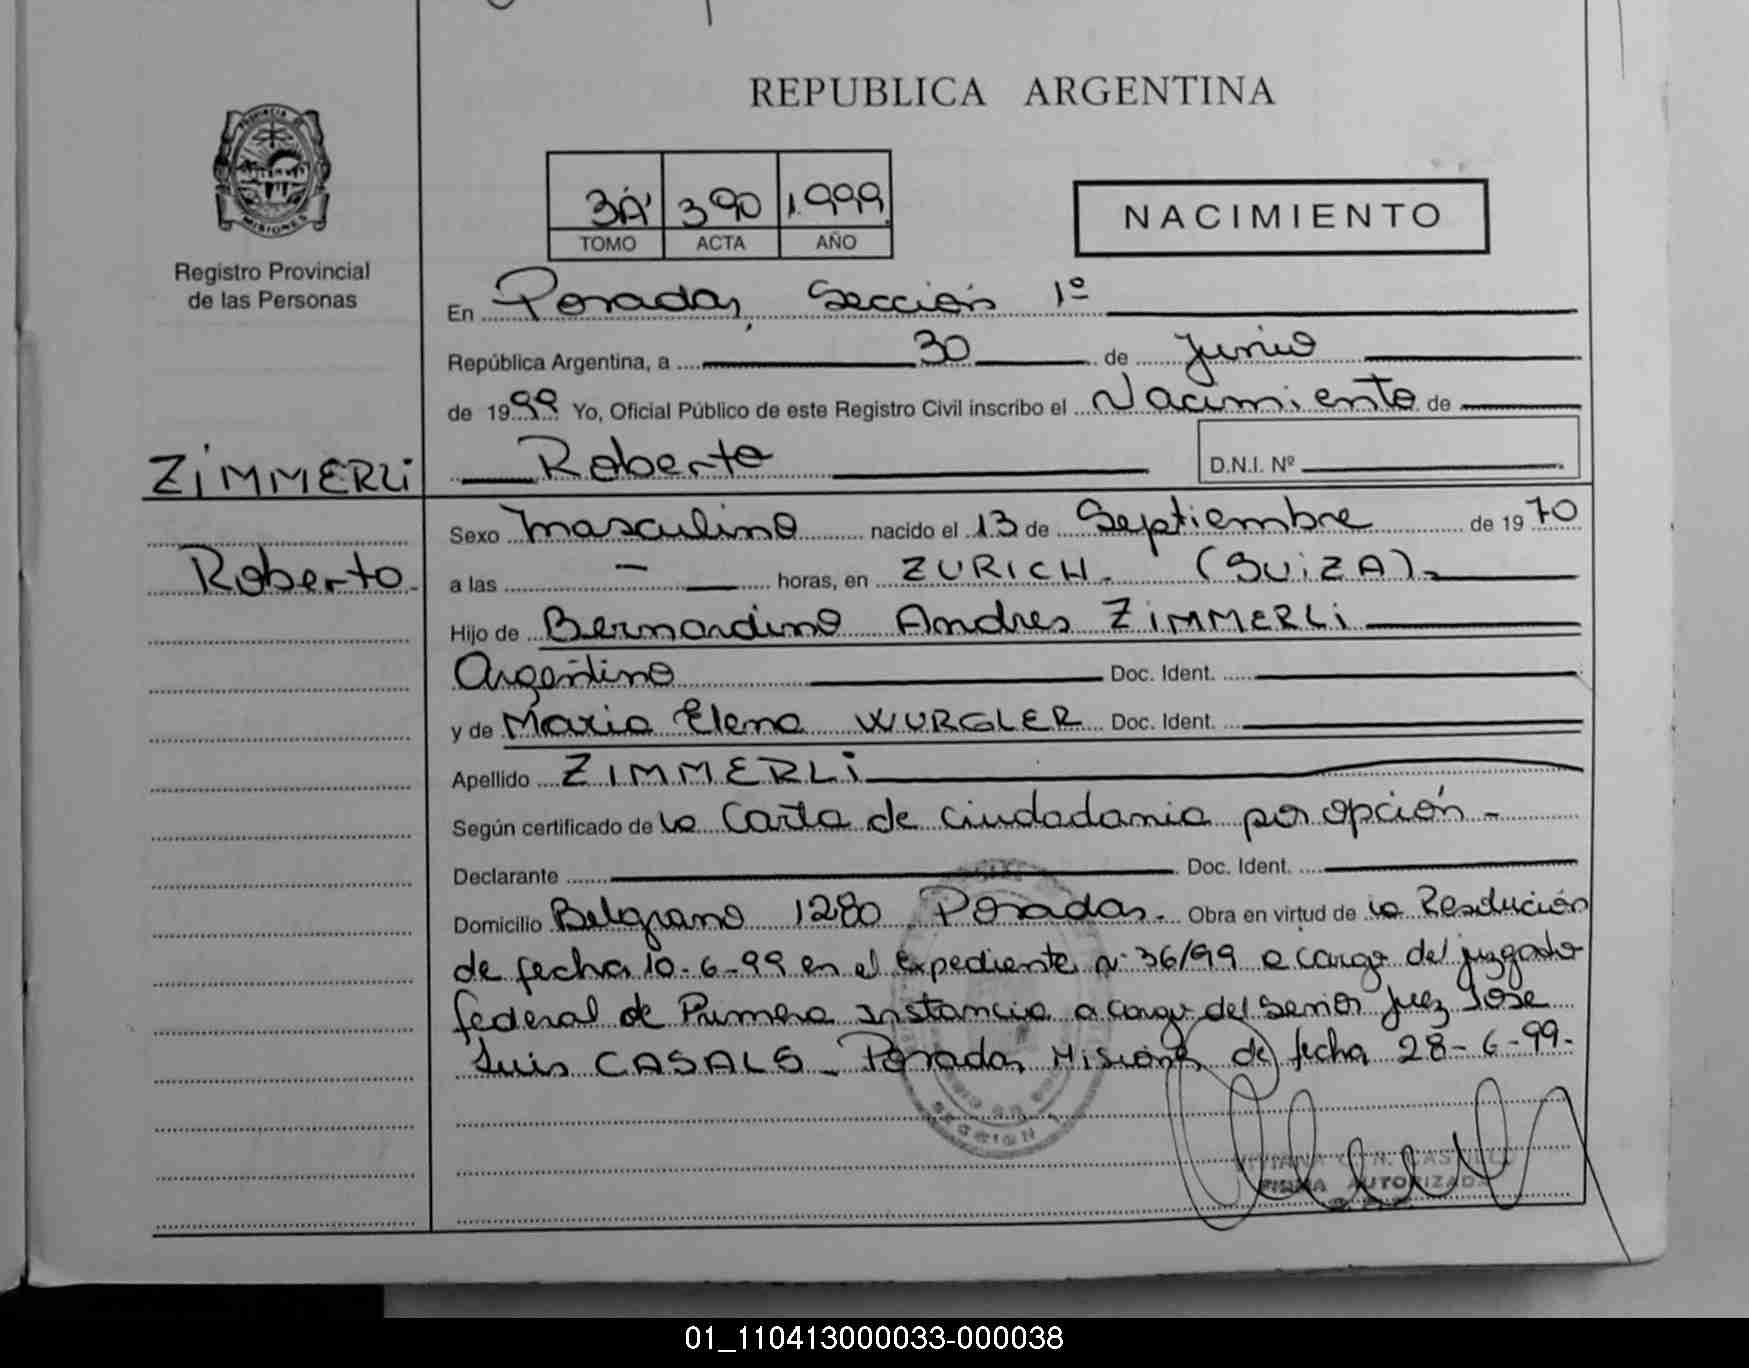 REPUBLICA ARGENTINA
PROVINCIA DE
MISIONES
Registro Provincial
de las Personas
3A' 390 1.999
TOMO ACTA AÑO
NACIMIENTO
En Posadas, Sección 1º
República Argentina, a 30 de Junio
de 1999 Yo, Oficial Público de este Registro Civil inscribo el Nacimiento de
ZIMMERLI
Roberto
Roberto
D.N.I. Nº
Sexo masculino nacido el 13 de Septiembre de 1970
a las - horas, en ZURICH. (SUIZA).
Hijo de Bernardino Andres ZIMMERLI
Argentino Doc. Ident.
y de Maria Elena WURGLER Doc. Ident.
Apellido ZIMMERLI
Según certificado de la Carta de ciudadania por opción -
Declarante Doc. Ident.
Domicilio Belgrano 1280 Posadas. Obra en virtud de la Resolución
de fecha 10-6-99 en el expediente nº 36/99 a cargo del juzgado
federal de Primera Instancia a cargo del Señor Juez Jose
Luis CASALS - Posadas, Misiones de fecha 28-6-99.-
SECCION 1
FIRMA AUTORIZADA
01_110413000033-000038